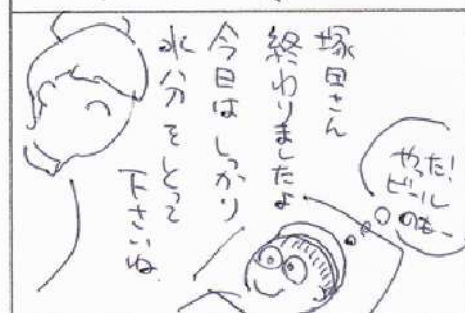 塚田さん
終わりましたよ
今日はしっかり
水分をとって
下さいね
やった!
ビール
のもー